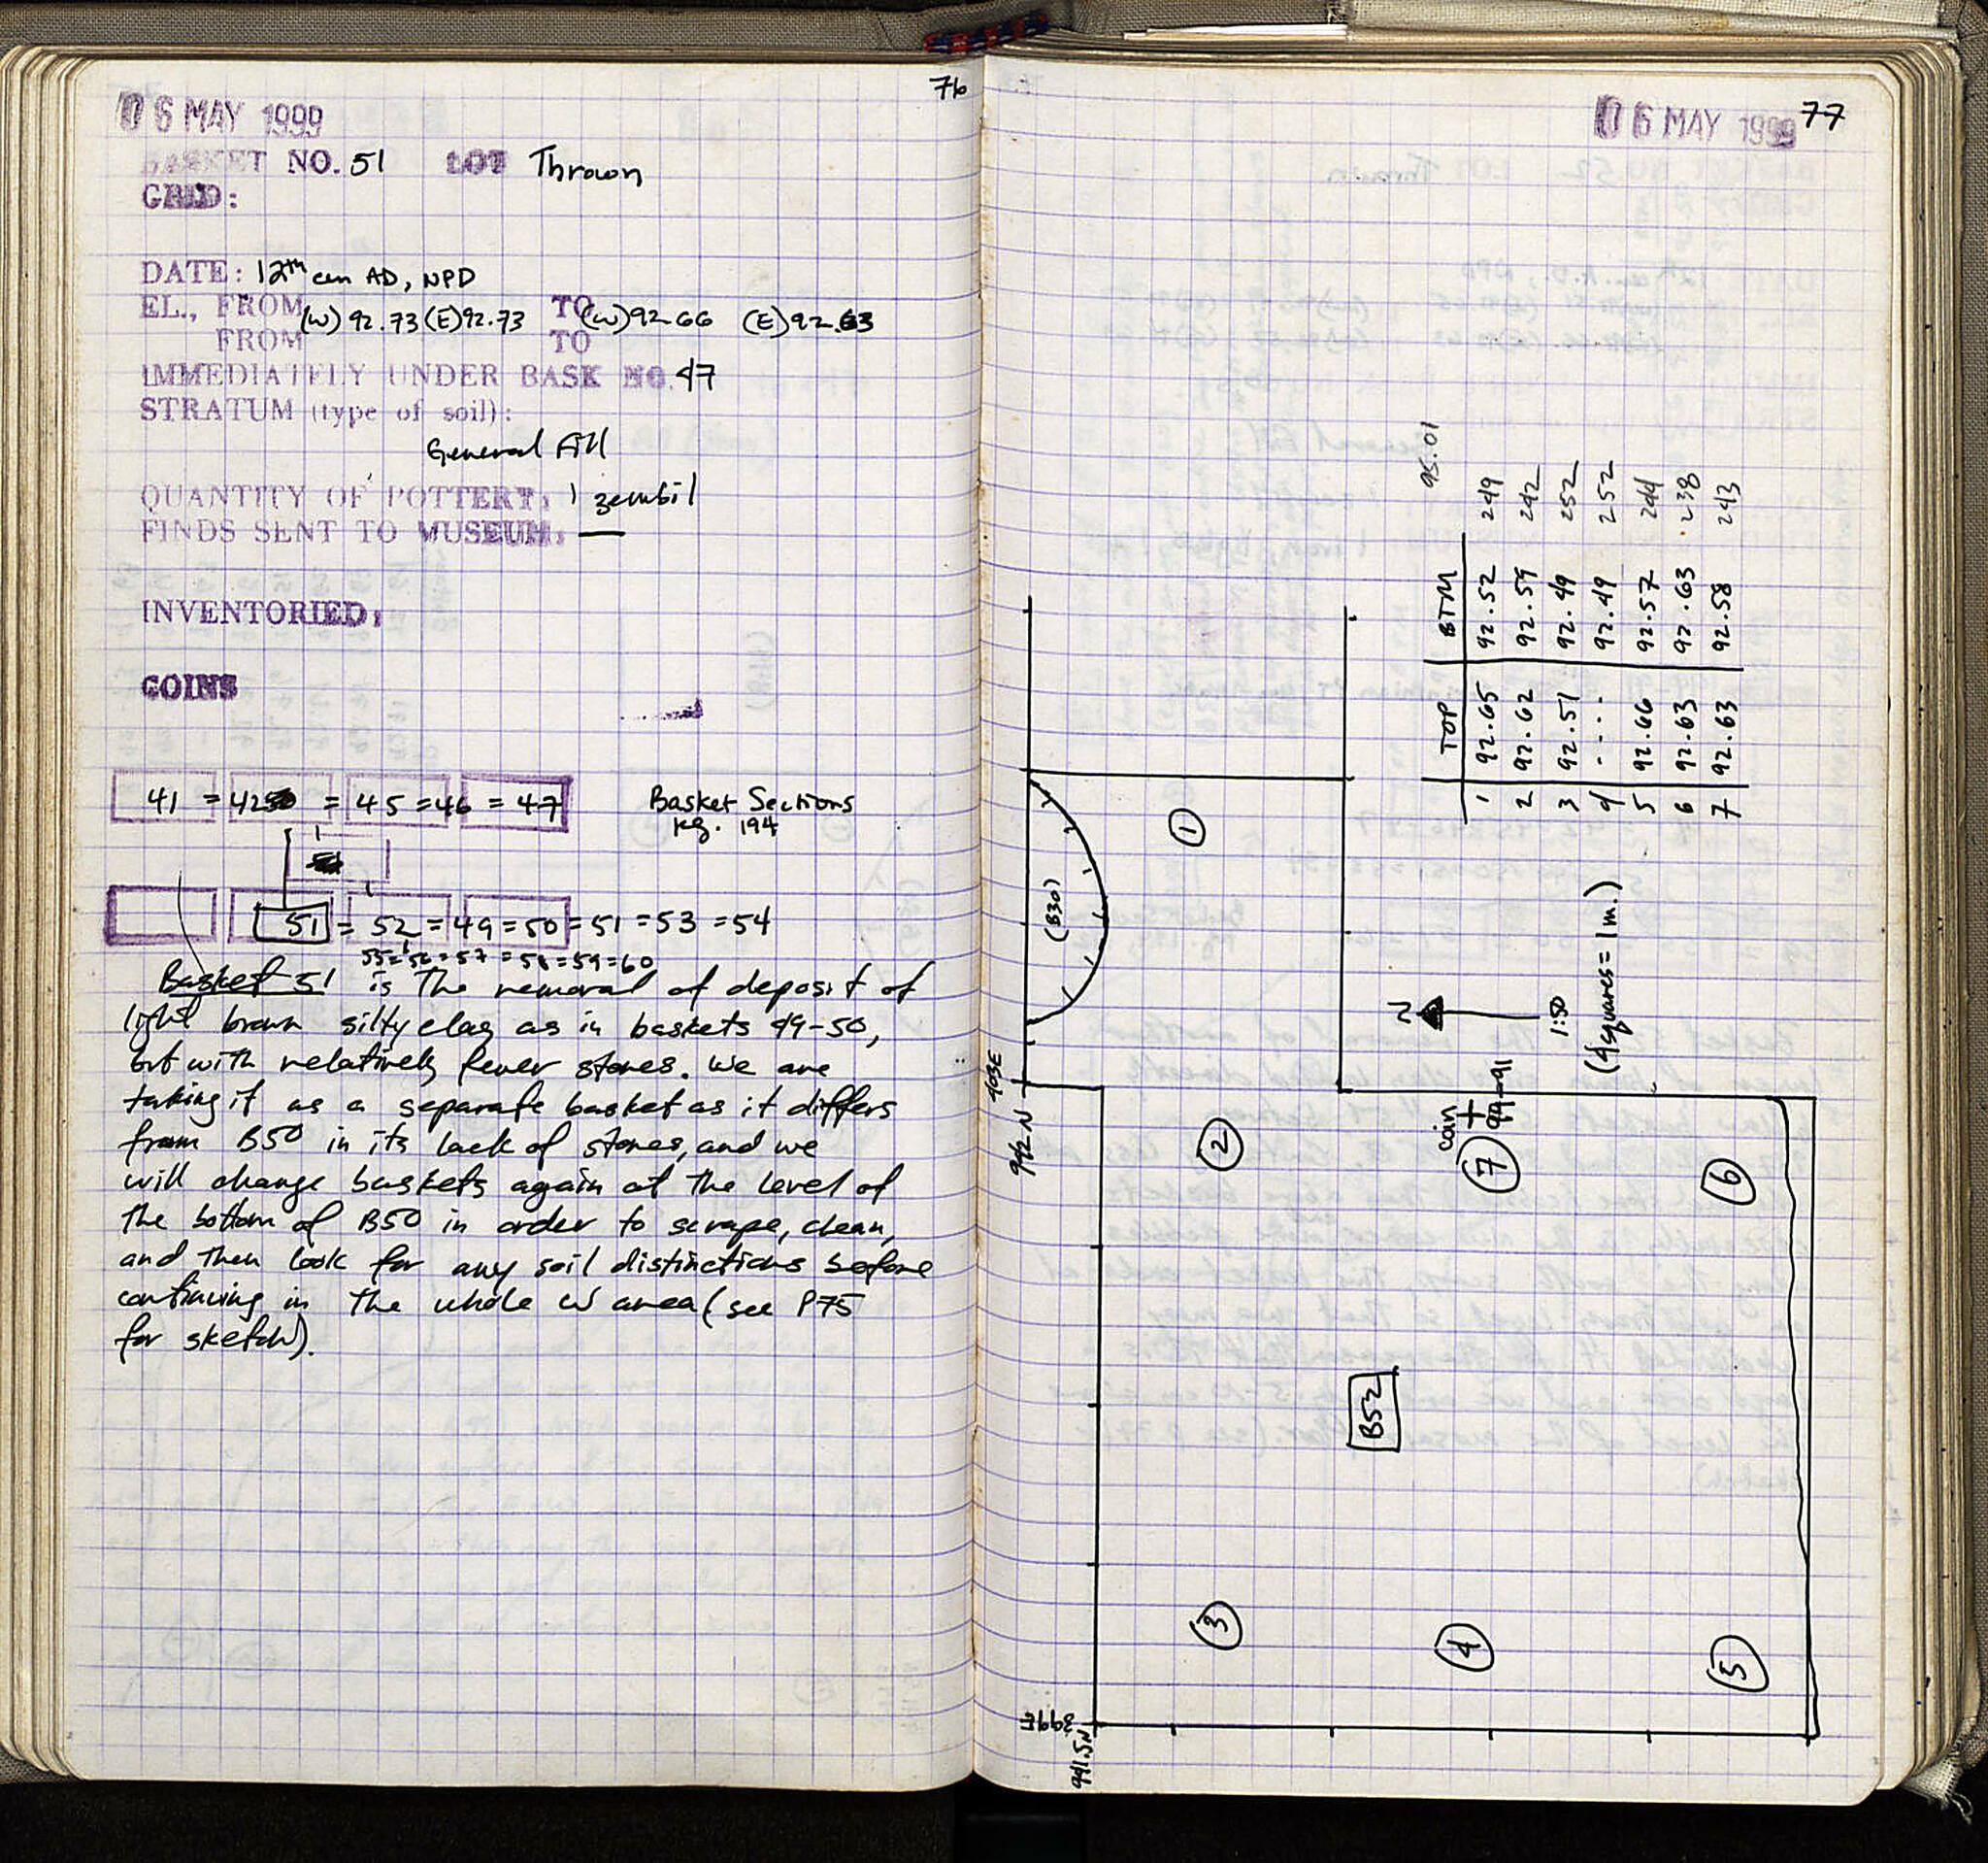 76
06 MAY 1999
BASKET NO. 51 LOT Thrown
GRID:
DATE: 12th cen AD, NPD
EL., FROM (W) 92.73 (E) 92.73 TO (W) 92.66 (E) 92.63
FROM TO
IMMEDIATELY UNDER BASK NO. 47
STRATUM (type of soil):
General Fill
QUANTITY OF POTTERY: 1 zembil
FINDS SENT TO MUSEUM: —
INVENTORIED:
COINS
41 = 42 = 45 = 46 = 47
Basket Sections
pg. 194
51 = 52 = 49 = 50 = 51 = 53 = 54
55 = 56 = 57 = 58 = 59 = 60
Basket 51 is the removal of deposit of
light brown silty clay as in baskets 49-50,
but with relatively fewer stones. We are
taking it as a separate basket as it differs
from B50 in its lack of stones, and we
will change baskets again at the level of
the bottom of B50 in order to scrape, clean,
and then look for any soil distinctions before
continuing in the whole W area (see P75
for sketch).
06 MAY 1999 77
95.01
TOP BTM
1 92.65 92.52 249
2 92.62 92.59 242
3 92.51 92.49 252
4 .... 92.49 252
5 92.66 92.57 244
6 92.63 92.63 238
7 92.63 92.58 243
1
(B30)
N
1:50
(4 squares = 1 m.)
403E
942 N
coin
99-91
2
7
6
B52
3
4
5
399E
941.5N